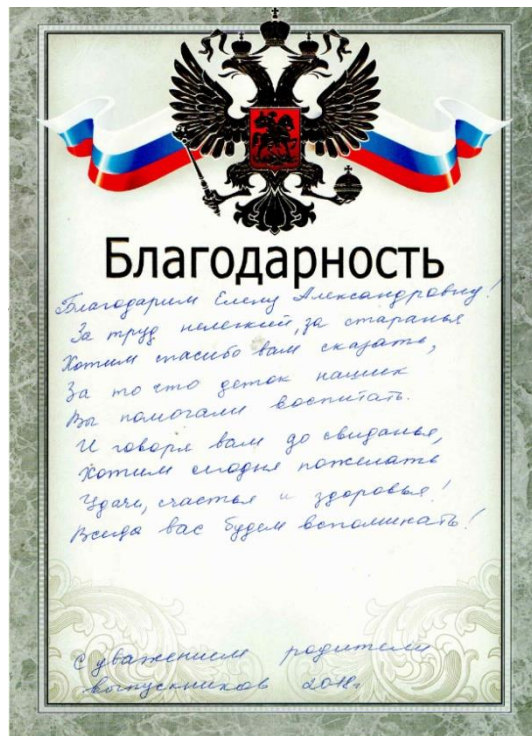 Благодарность
Благодарим Елену Александровну!
За труд нелегкий, за старанья
Хотим спасибо вам сказать,
За то что деток наших
Вы помогали воспитать.
И говоря вам до свиданья,
Хотим сегодня пожелать
Удачи, счастья и здоровья!
Всегда вас будем вспоминать!
С уважением родители
выпускников 2018г